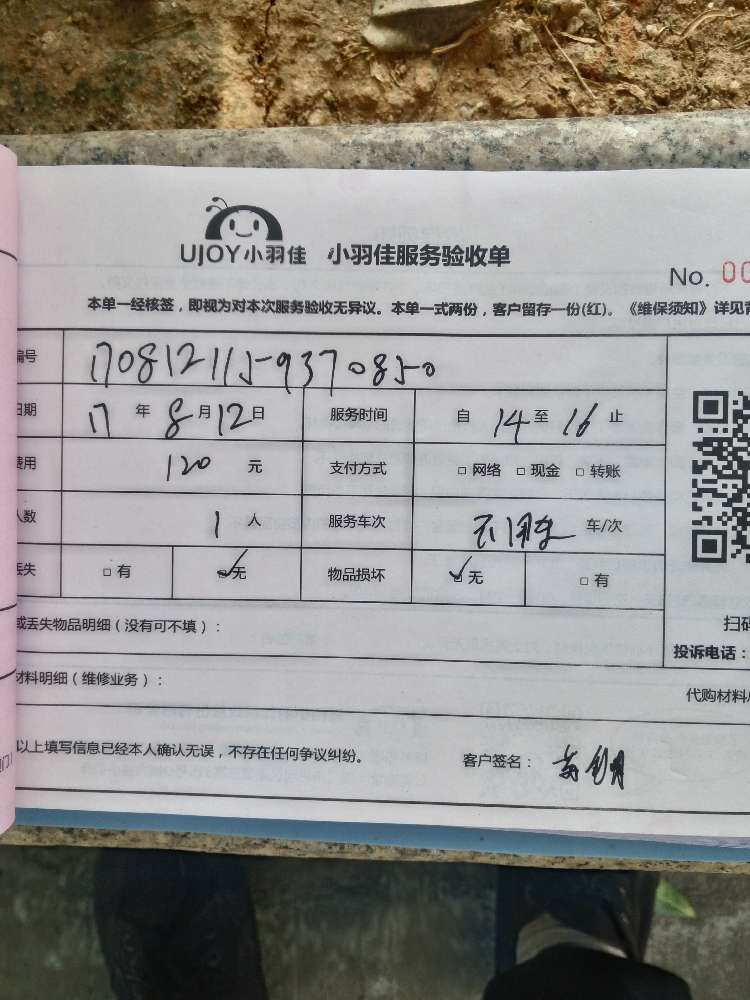 UJOY小羽佳 小羽佳服务验收单
No. 00
本单一经核签，即视为对本次服务验收无异议。本单一式两份，客户留存一份(红)。《维保须知》详见背
编号 1708121159370850
日期 17 年 8 月 12 日 服务时间 自 14 至 16 止
费用 120 元 支付方式 □ 网络 □ 现金 □ 转账
人数 1 人 服务车次 不用车 车/次
丢失 □ 有 ☑ 无 物品损坏 ☑ 无 □ 有
或丢失物品明细（没有可不填）：
扫码
投诉电话：
材料明细（维修业务）：
代购材料
以上填写信息已经本人确认无误，不存在任何争议纠纷。 客户签名：